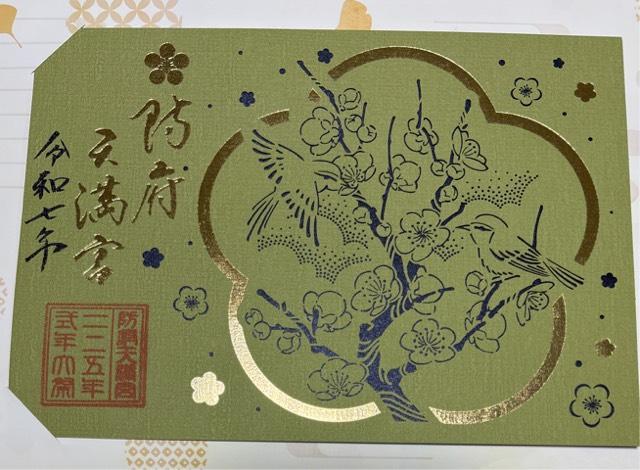 防府
天満宮
令和七年
防府天満宮
一一二五年
式年大祭